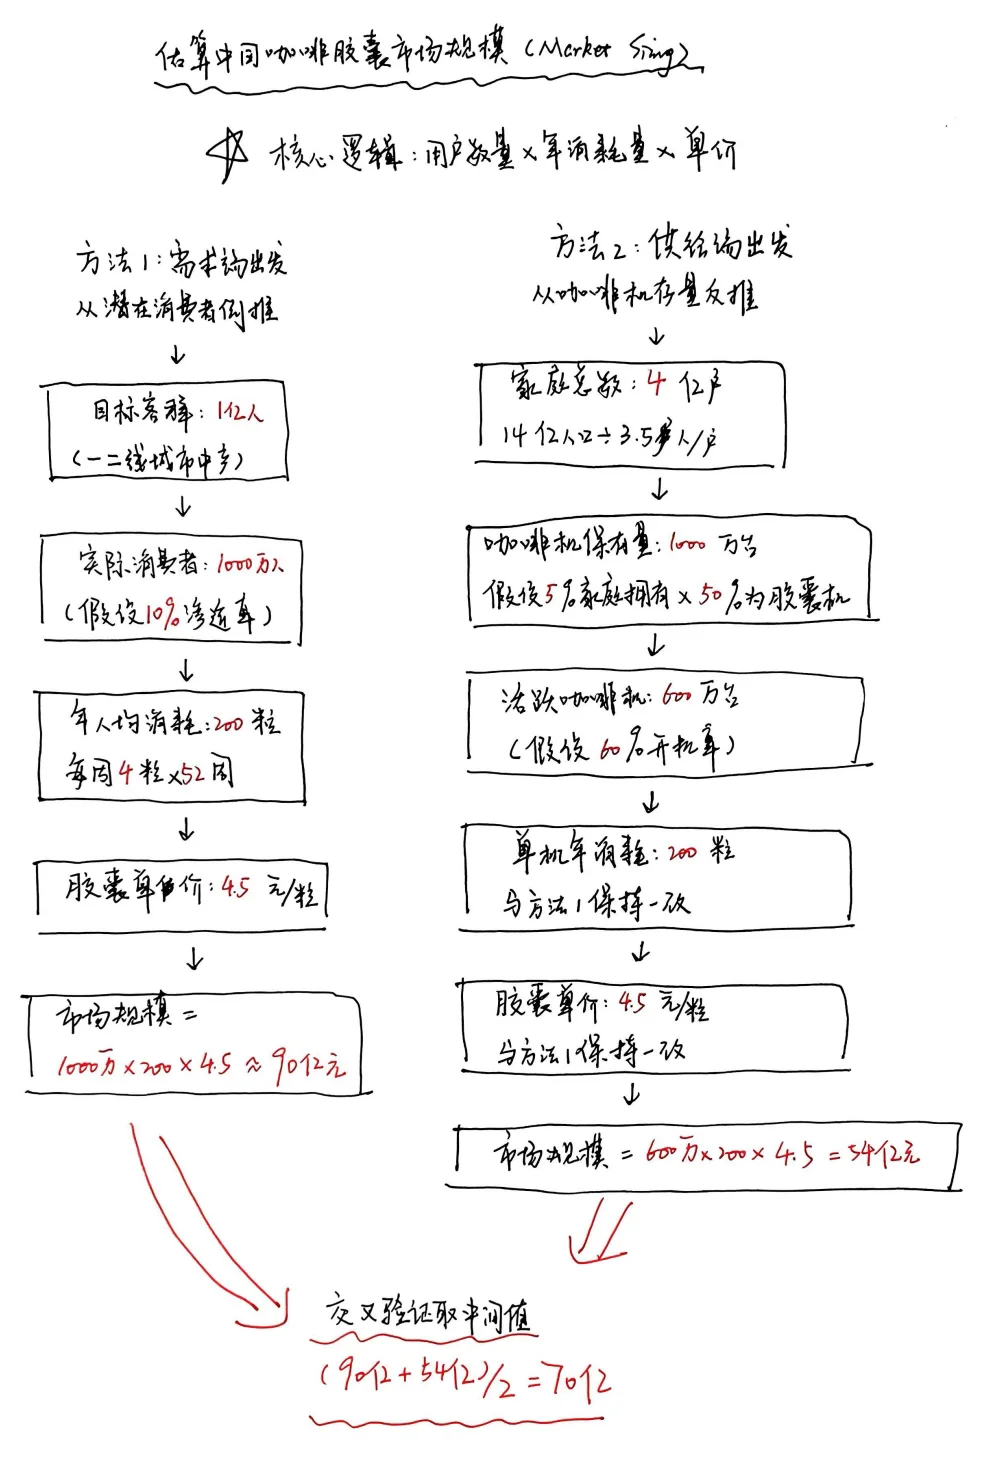 估算中国咖啡胶囊市场规模（Market Sizing）
核心逻辑：用户数量×年消耗量×单价
方法1：需求端出发
从潜在消费者倒推
↓
目标客群：1亿人
（一二线城市中产）
↓
实际消费者：1000万人
（假设10%渗透率）
↓
年人均消耗：200粒
每周4粒×52周
↓
胶囊单价：4.5元/粒
↓
市场规模＝
1000万×200×4.5≈90亿元
方法2：供给端出发
从咖啡机存量反推
↓
家庭总数：4亿户
14亿人口÷3.5人/户
↓
咖啡机保有量：1000万台
假设5%家庭拥有×50%为胶囊机
↓
活跃咖啡机：600万台
（假设60%开机率）
↓
单机年消耗：200粒
与方法1保持一致
↓
胶囊单价：4.5元/粒
与方法1保持一致
↓
市场规模＝600万×200×4.5＝54亿元
交叉验证取中间值
(90亿+54亿)/2=70亿